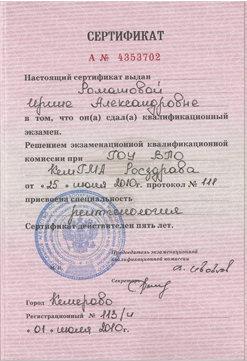 СЕРТИФИКАТ
А № 4353702
Настоящий сертификат выдан
Ромашовой
Ирине Александровне
в том, что он(а) сдал(а) квалификационный
экзамен.
Решением экзаменационной квалификационной
комиссии при ГОУ ВПО
КемГМА Росздрава
от «25» июня 2010г. протокол № 118
присвоена специальность
рентгенология
Сертификат действителен пять лет.
Председатель экзаменационной
квалификационной комиссии
Секретарь
Город Кемерово
Регистрационный № 113/ч
«01» июля 2010г.